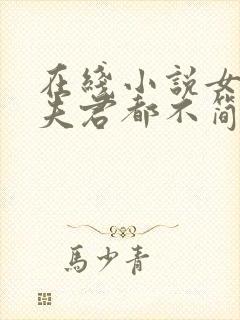 在綫小説女
夫君都不简
馬少青